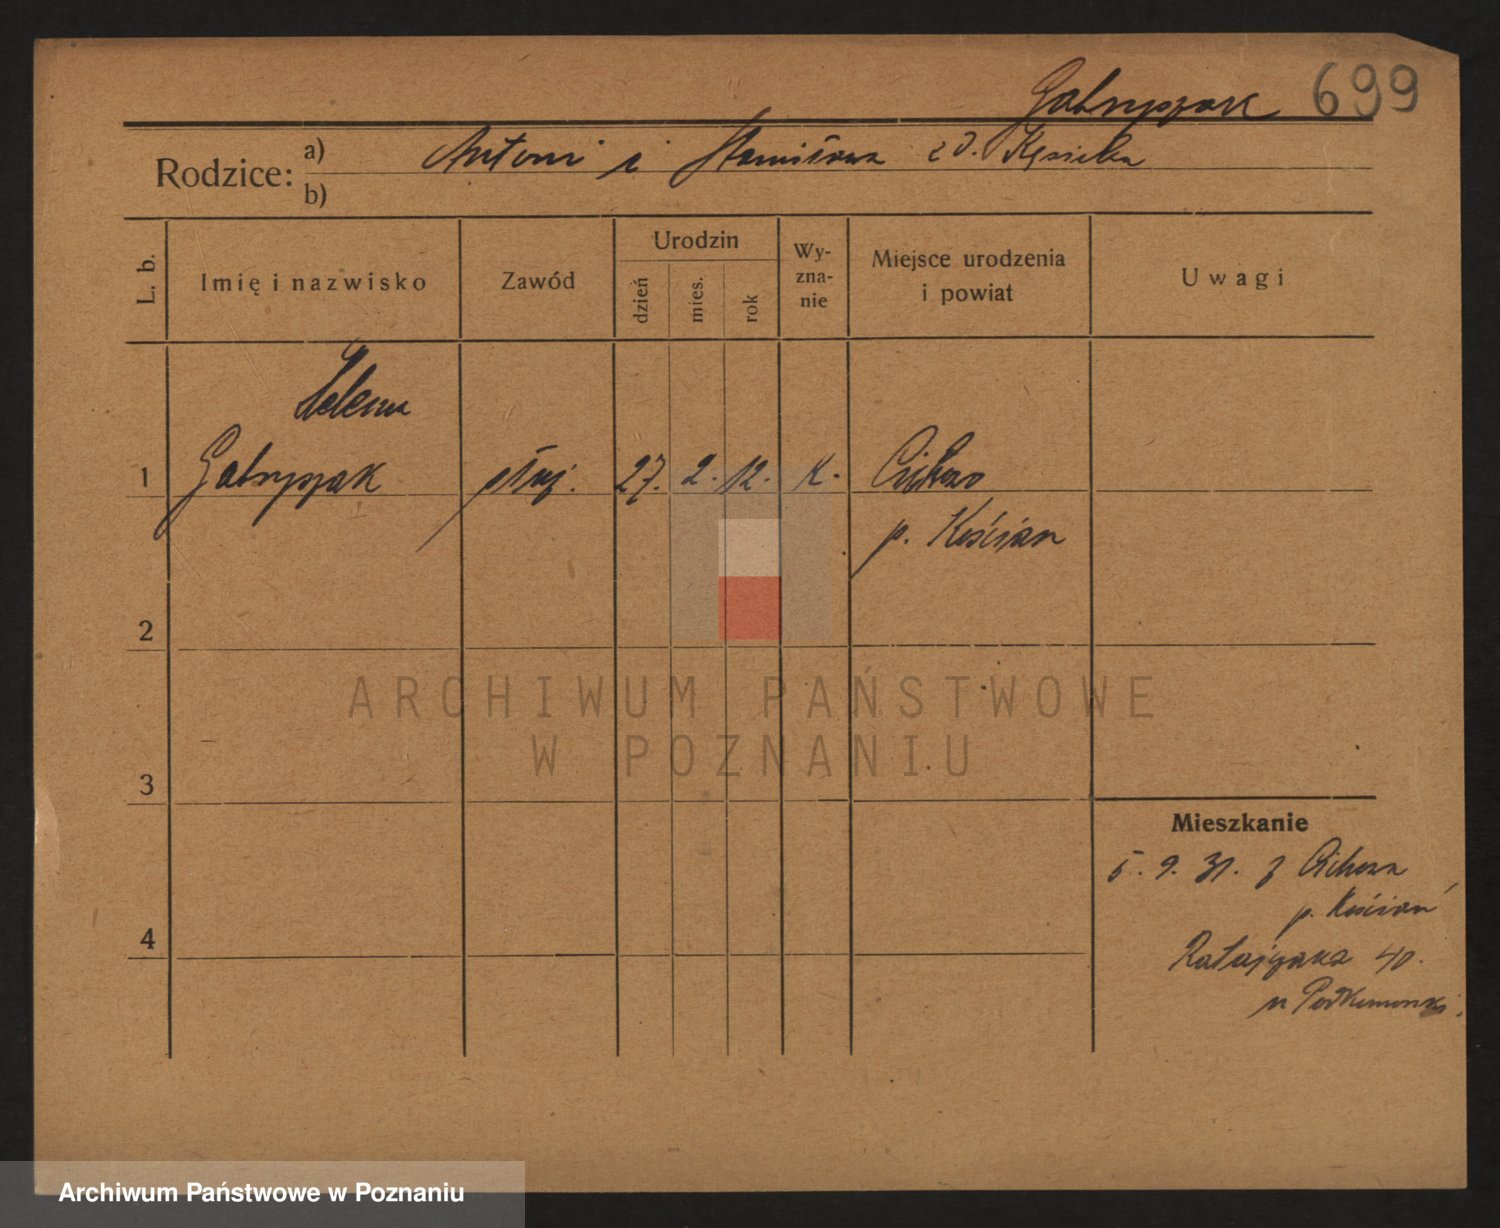 Gabryszak 699
Rodzice:
a) Antoni i Stanisława zd. Kęsicka
b)
L. b.
Imię i nazwisko
Zawód
Urodzin
dzień
mies.
rok
Wy-
zna-
nie
Miejsce urodzenia
i powiat
Uwagi
Helena
1 Gabryszak służ. 27. 2. 12. k. Cichowo
p. Kościan
2
3
4
Mieszkanie
5. 9. 31. z Cichowa
p. Kościan
Ratajczaka 40.
u Podkomorski
ARCHIWUM PAŃSTWOWE
W POZNANIU
Archiwum Państwowe w Poznaniu